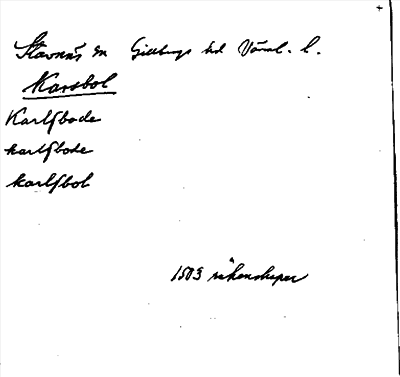 Stavnäs sn Gillbergs hd Värml. l.
Karsbol
Karlſbode
karlſbode
karlſbol
1503 räkenskaper